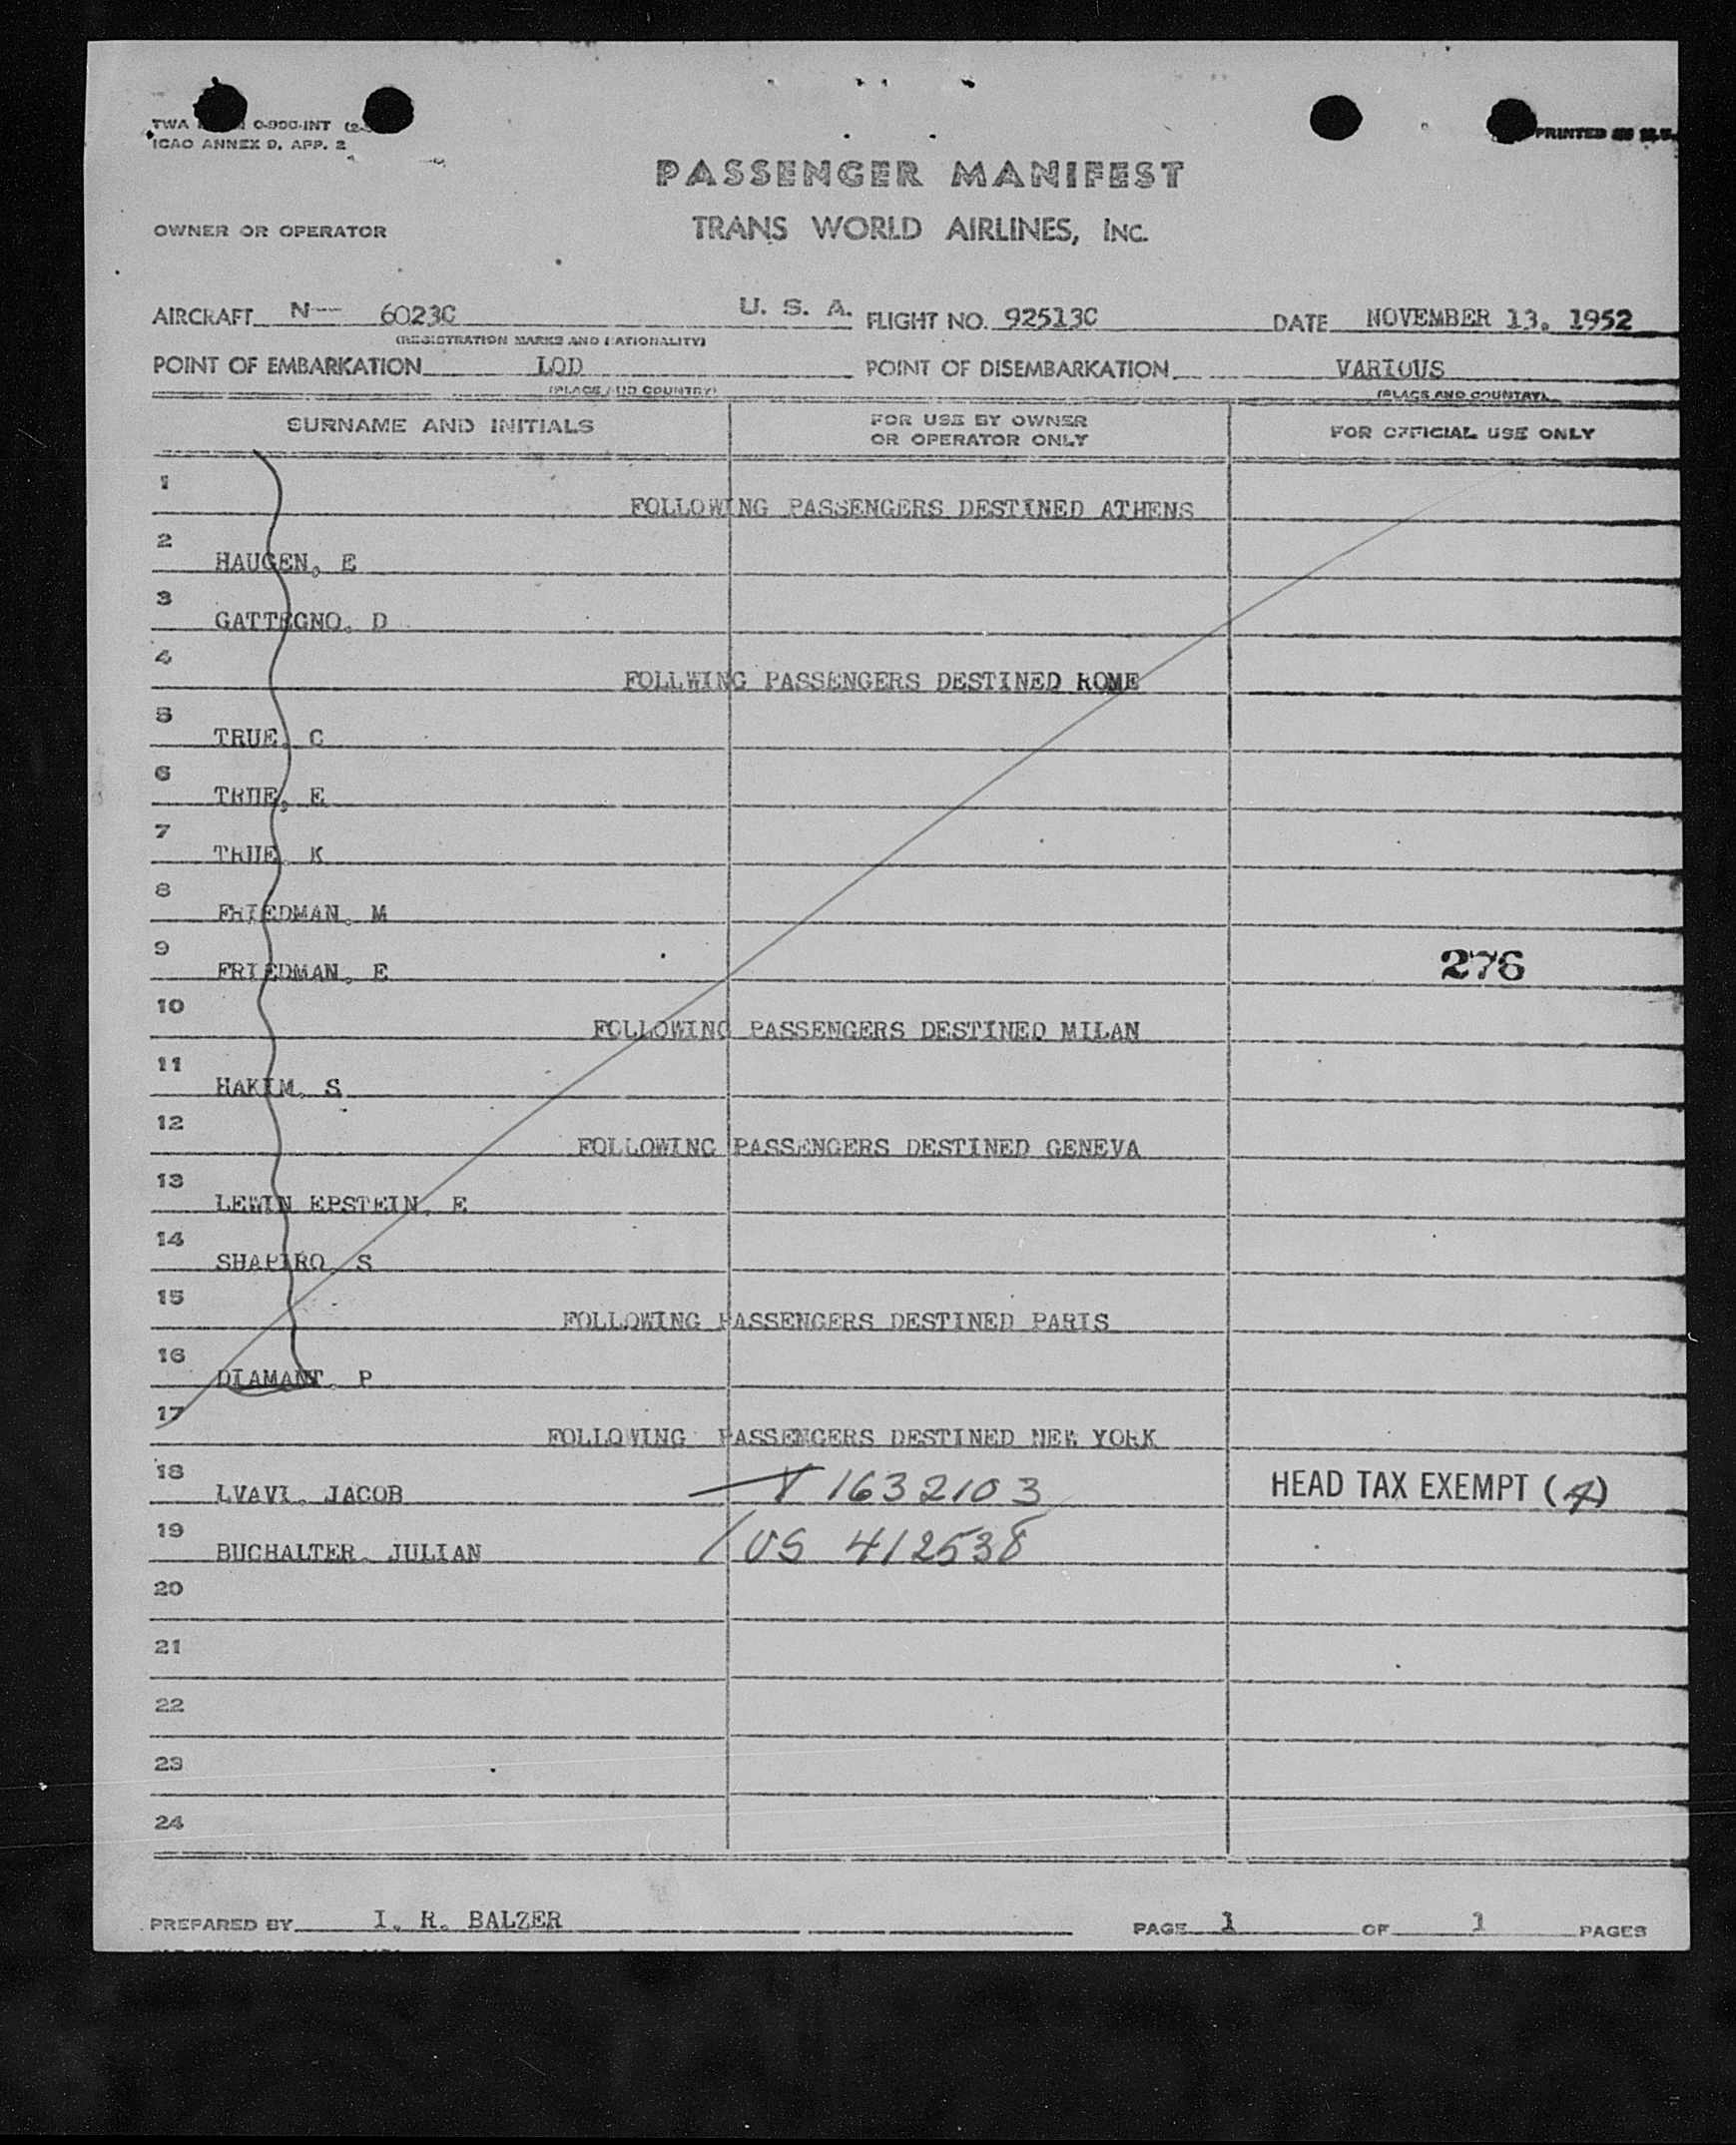 TWA
0-900-INT (2-
ICAO ANNEX 9, APP. 2
PRINTED IN U.S.
PASSENGER MANIFEST
OWNER OR OPERATOR TRANS WORLD AIRLINES, INC.
AIRCRAFT N-- 6023C U. S. A. FLIGHT NO. 92513C DATE NOVEMBER 13. 1952
(REGISTRATION MARKS AND NATIONALITY)
POINT OF EMBARKATION LOD POINT OF DISEMBARKATION VARIOUS
(PLACE AND COUNTRY) (PLACE AND COUNTRY)
SURNAME AND INITIALS FOR USE BY OWNER OR OPERATOR ONLY FOR OFFICIAL USE ONLY
1 FOLLOWING PASSENGERS DESTINED ATHENS
2 HAUGEN, E
3 GATTEGNO, D
4 FOLLWING PASSENGERS DESTINED ROME
5 TRUE, C
6 TRUE, E
7 TRUE, K
8 FRIEDMAN, M
9 FRIEDMAN, E 276
10 FOLLOWING PASSENGERS DESTINED MILAN
11 HAKIM, S
12 FOLLOWING PASSENGERS DESTINED GENEVA
13 LEWIN EPSTEIN, E
14 SHAPIRO, S
15 FOLLOWING PASSENGERS DESTINED PARIS
16 DIAMANT, P
17 FOLLOWING PASSENGERS DESTINED NEW YORK
18 LVAVI, JACOB V 1632103 HEAD TAX EXEMPT (4)
19 BUCHALTER, JULIAN US 412538
20
21
22
23
24
PREPARED BY I. R. BALZER PAGE 1 OF 1 PAGES